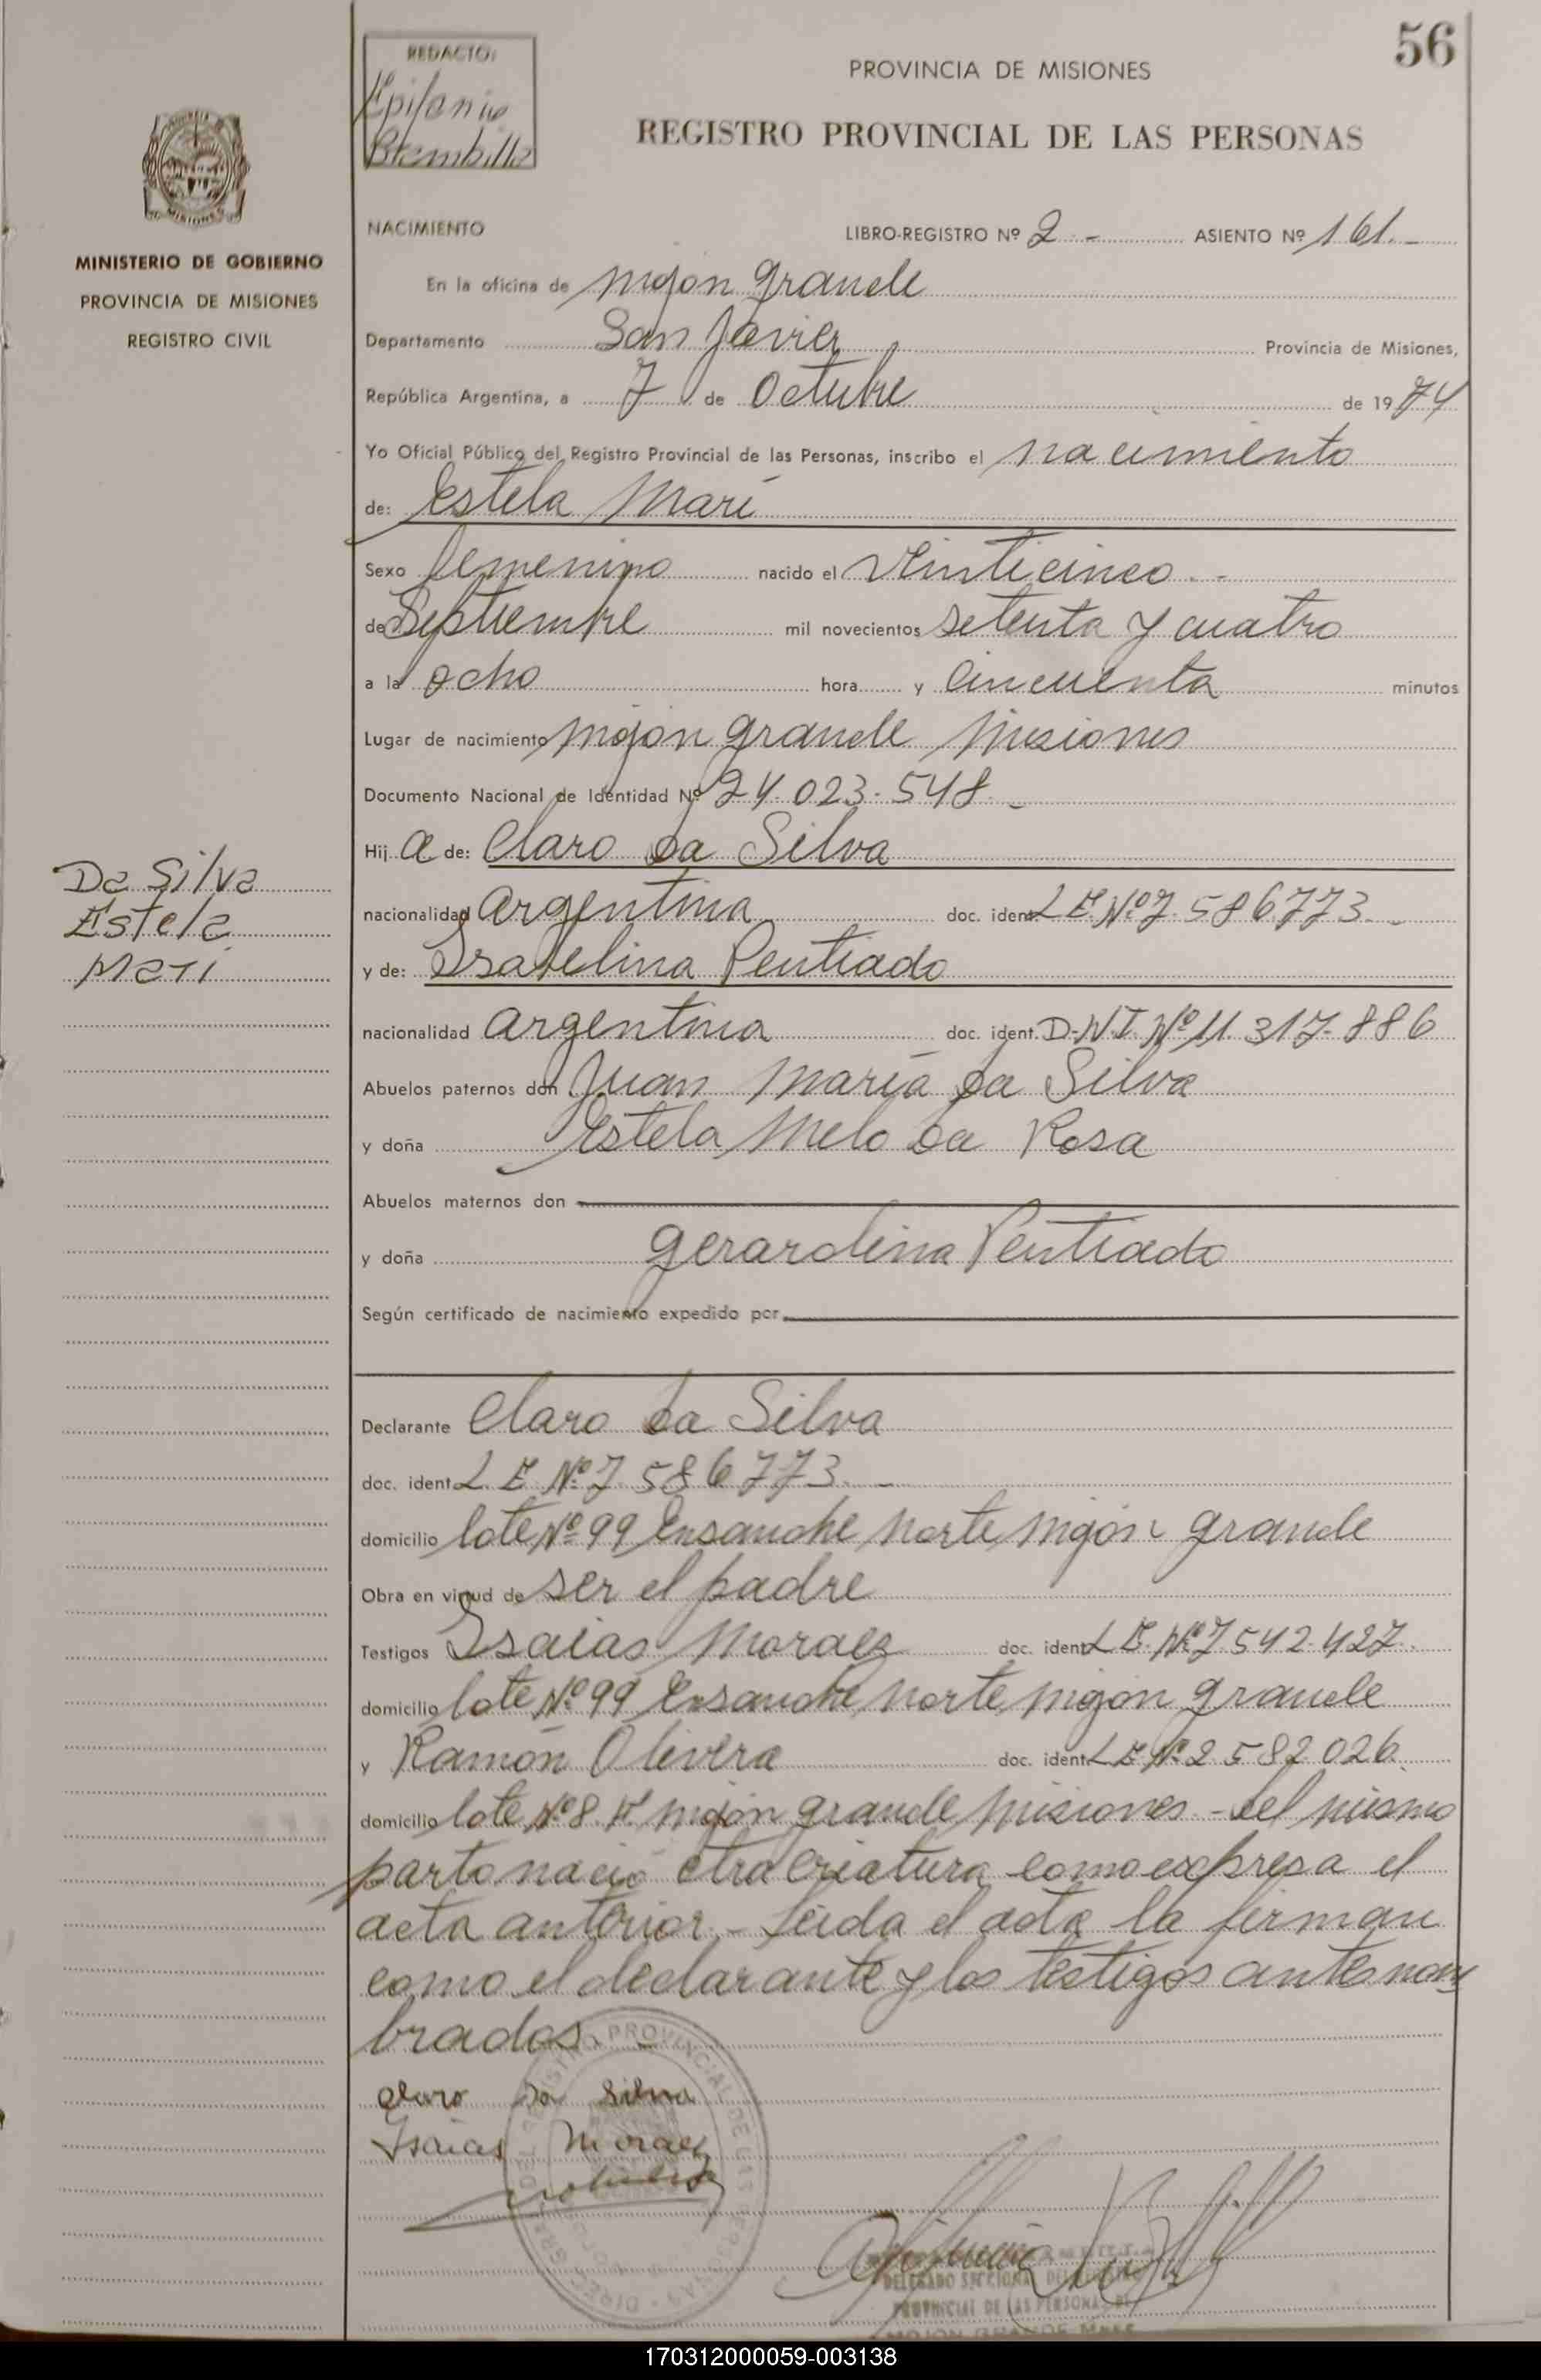 56
REDACTO:
Epifanio
Brembilla
PROVINCIA DE MISIONES
REGISTRO PROVINCIAL DE LAS PERSONAS
MISIONES
MINISTERIO DE GOBIERNO
PROVINCIA DE MISIONES
REGISTRO CIVIL
NACIMIENTO LIBRO-REGISTRO Nº 2.- ASIENTO Nº 161.-
En la oficina de Mojon Grande
Departamento San Javier Provincia de Misiones,
República Argentina, a 7 de Octubre de 1974
Yo Oficial Público del Registro Provincial de las Personas, inscribo el nacimiento
de: Estela Mari
Sexo femenino nacido el Veinticinco.-
de Septiembre mil novecientos setenta y cuatro
a la ocho hora y cincuenta minutos
Lugar de nacimiento Mojon grande Misiones
Documento Nacional de Identidad Nº 24.023.548.-
Hij a de: Claro Da Silva
De Silva
Estela
Mari
nacionalidad Argentina doc. ident. L E Nº 7.586773.-
y de: Isabelina Pentiado
nacionalidad argentina doc. ident. D.N.I. Nº 11.317.886
Abuelos paternos don Juan María Da Silva
y doña Estela Melo Da Rosa
Abuelos maternos don
y doña Gerardina Pentiado
Según certificado de nacimiento expedido por
Declarante Claro Da Silva
doc. ident. L.E. Nº 7.586773.-
domicilio lote Nº 99 Ensanche Norte Mojón grande
Obra en virtud de ser el padre
Testigos Isaias Moraez doc. ident. L E. Nº 7.542.427.
domicilio lote Nº 99 Ensanche norte Mojon grande
y Ramón Olivera doc. ident. L E Nº 2 582 026.
domicilio lote Nº 8. Mojón grande Misiones - Del mismo
parto nació otra criatura como expresa el
acta anterior.- Leida el acta la firman
como el declarante y los testigos antes nom
brados.
Claro Da Silva
Isaias Moraez
DELEGADO SECCIONAL DEL REGISTRO
PROVINCIAL DE LAS PERSONAS DE
MOJON GRANDE MNES.
170312000059-003138